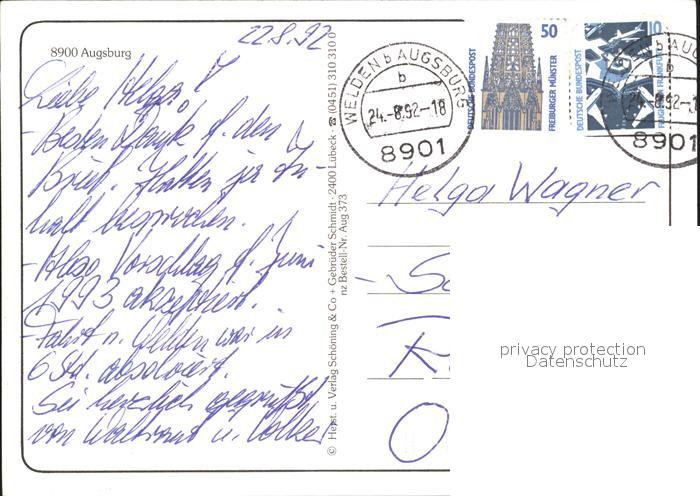 22.8.92
8900 Augsburg
Liebe Helga!
- Besten Dank f. den
Brief. Hatten ja In-
halt besprochen.
- Also Vorschlag f. Juni
1993 akzeptiert.
- Fahrt n. Welden war in
6 Std. absolviert.
Sei herzlich gegrüßt
von Waltraud u. Volker
© Herst. u. Verlag Schöning & Co + Gebrüder Schmidt · 2400 Lübeck · ☎ (0451) 310 310
nz Bestell-Nr. Aug 373
WELDEN b AUGSBURG
b
24.-8.92-18
8901
50
DEUTSCHE BUNDESPOST
FREIBURGER MÜNSTER
10
DEUTSCHE BUNDESPOST
FLUGHAFEN FRANKFURT
WELDEN b AUG
24.-8.92-1
8901
Helga Wagner
privacy protection
Datenschutz